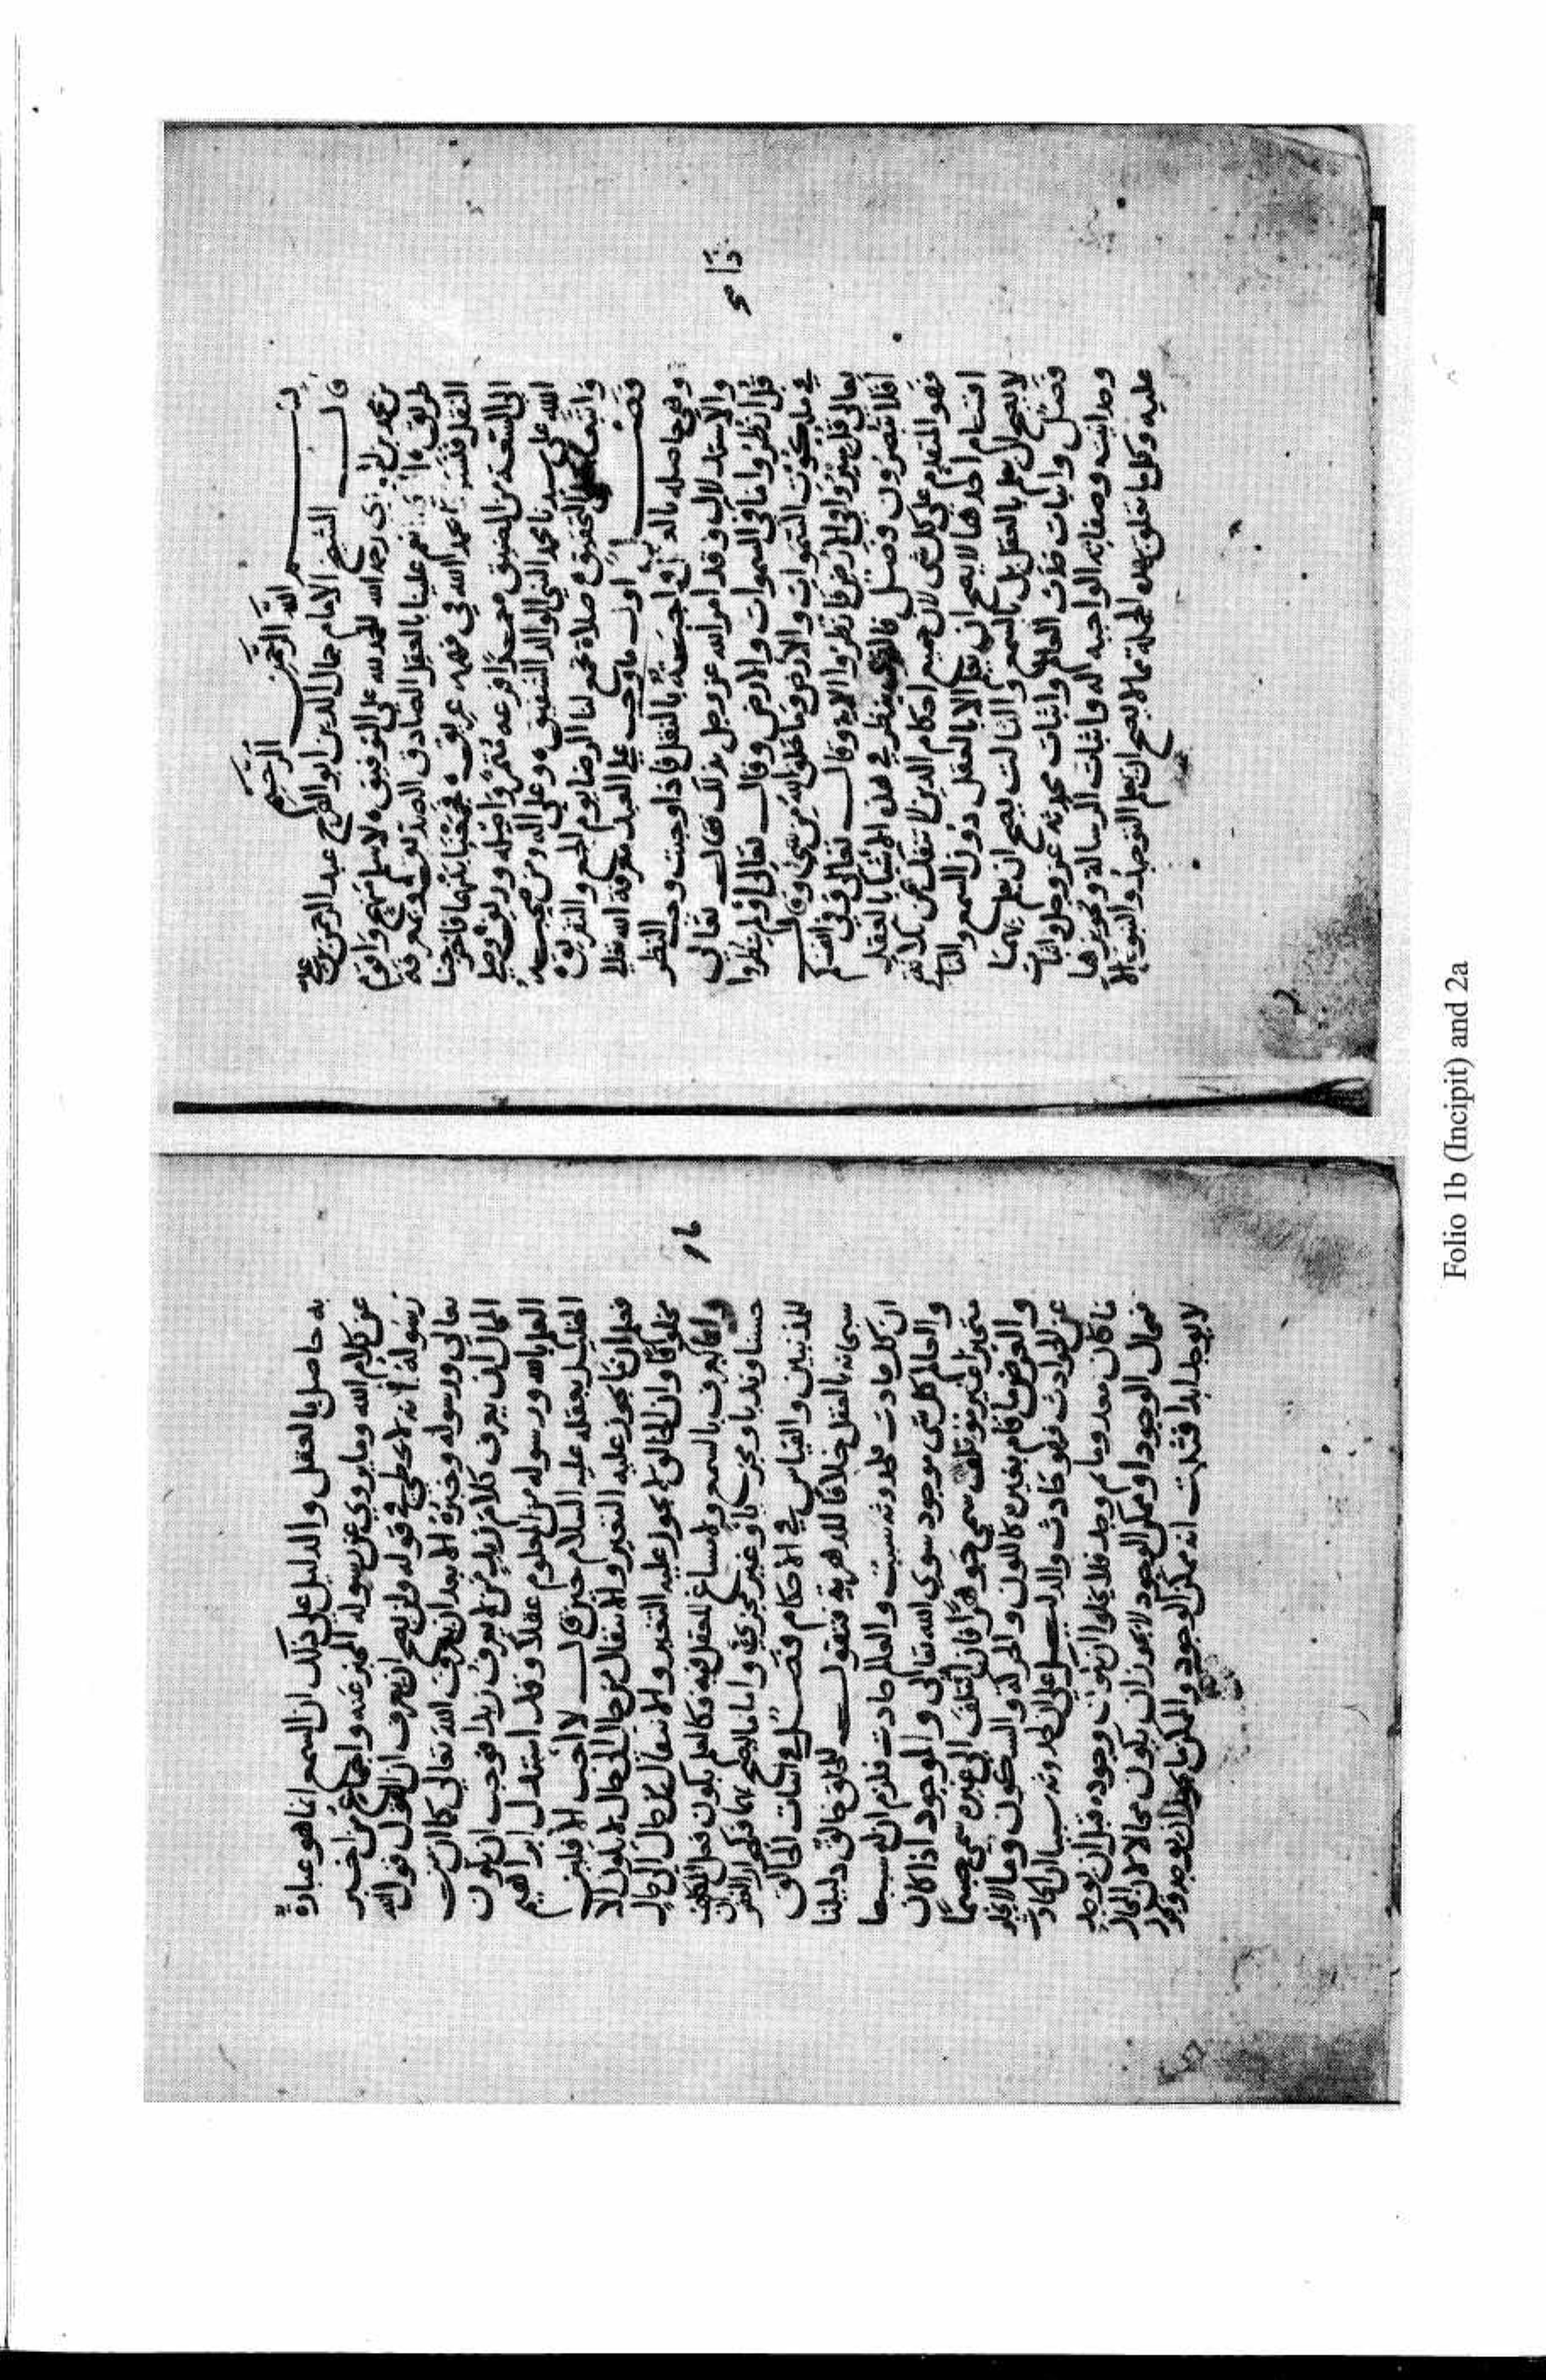 بسم الله الرحمن الرحيم
قال الشيخ الامام جمال الدين ابو الفرج عبد الرحمن بن علي
بن محمد بن الجوزي رحمه الله الحمد لله على التوفيق لاسلم نهج واقوم
طريق انعم علينا بالعقل الصادق الصدوق
النقل محمد الله في فهمه غريق
الى السعة من المضيق
الله على سيدنا محمد النبي الوالد الشفيق وعلى اله ومن صحبه
واتبعه التحقيق صلاة تجمع لنا الرضا يوم الجمع والتفريق
فصل اول ما وجب على العبد معرفة الله تعالى
وهي حاصله واجب بالنقل فاذا وجبت وجب النظر
والاستدلال وقد امر الله عز وجل بذلك فقال تعالى
قل انظروا ماذا في السموات والارض وقال تعالى اولم ينظروا
في ملكوت السموات والارض وما خلق الله من شيء وقال
تعالى قل سيروا في الارض فانظروا الاية وقال تعالى وفي انفسكم
افلا تبصرون فصل فالذي ينظر في هذه الاشيا بالعقل
فهو المتقدم على كل شي لان جميع احكام الدين لا تنفك عن ثلاثة
اقسام احدها لا يصح ان يعلم الا بالعقل دون السمع والثاني
لا يصح ان يعلم بالعقل بل بالسمع والثالث يصح ان يعلم بهما
فصل واثبات حدث العالم واثبات محدثه عز وجل واثبات
وحدانيته وصفاته الواجبه له واثبات الرسالة وتجويزها
عليه وكل ما يتعلق بهذه الجملة مما لا يصح ان يعلم التوحيد والنبوة الا
به حاصل بالعقل والدليل على ذلك ان السمع انما هو عبارة
عن كلام الله وما روي عن رسوله المخبر عنه واجماع من اخبر
رسوله انه لا يخطي في قوله ولن يصح ان يعرف ان القول قول الله
تعالى ورسوله وخبره الا بعد ان يعرف الله تعالى كما ان من
المحال ان يعرف كلام زيد من لا يعرف زيدا فوجب ان يكون
العلم بالله ورسوله من المعلوم عقلا وقد استدل ابراهيم
الخليل بعقله عليه السلام حين قال لا احب الافلين
فعلم ان ما يجوز عليه التغير والانتقال من حال الى حال لا يكون الا
مخلوقا وان الخالق لا يجوز عليه التغير والانتقال من حال الى حال
واما ما يعرف بالسمع ولا مساغ للعقل فيه فكالعلم بكون فعل المكلف
حسنا وندبا ومجزيا وغير مجزي واما ما يصح بهما فكجواز الغفران
للمذنبين والقياس في الاحكام فصل في اثبات الخالق
سبحانه بالعقل خلافا للدهرية فنقول للخلق خالق دليلنا
ان كل حادث فلحدوثه سبب والعالم حادث فلزم ان له سببا
والعالم كل شي موجود سوى الله تعالى والموجود اذا كان
متحيزا غير مؤتلف سمي جوهرا فان ائتلف الى غيره سمي جسما
والعرض ما قام بغيره كاللون والحركة والسكون وما لا يخلو
عن الحوادث فهو حادث والدليل على ان لحدوثه سببا ان الحادث
ما كان معدوما ثم وجد فلا يخلوا ان يكون وجوده قبل ان يوجد
محال الوجود او ممكن الوجود لا يجوز ان يكون محالا لان المحال
لا يوجد ابدا فثبت انه ممكن الوجود والممكن ما يجوز ان يوجد ويجوز
Folio 1b (Incipit) and 2a